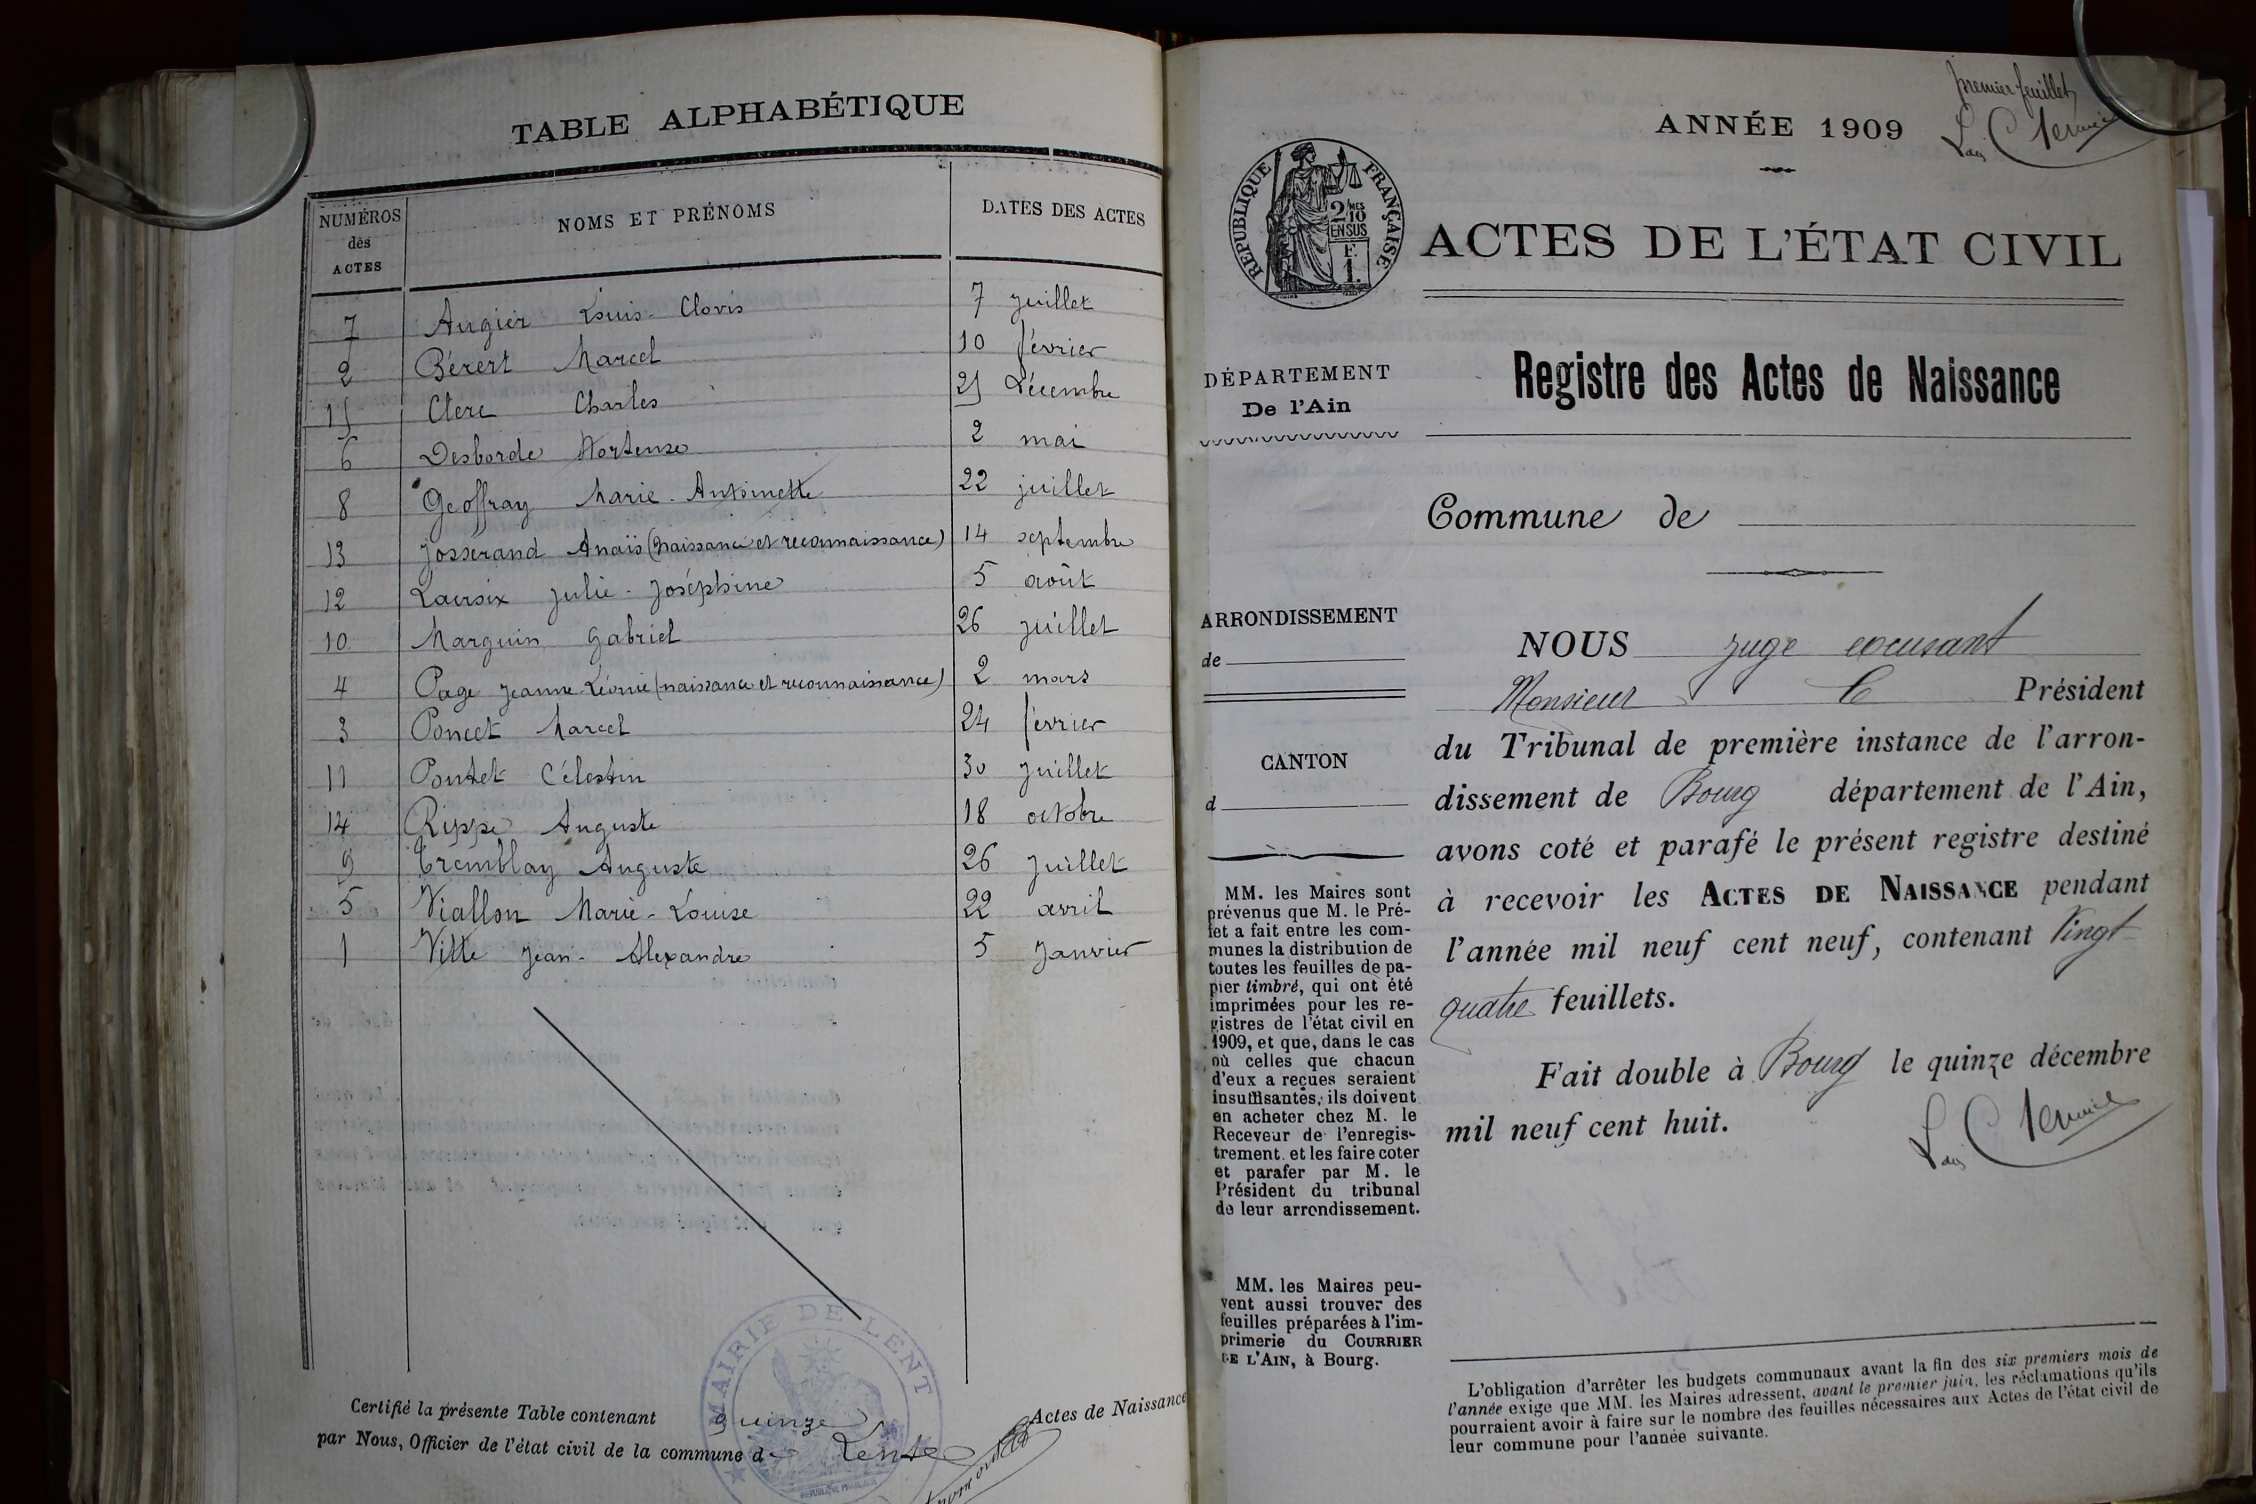 TABLE ALPHABÉTIQUE
NUMÉROS des ACTES NOMS ET PRÉNOMS DATES DES ACTES
7 Augier Louis-Clovis 7 juillet
2 Bérert Marcel 10 février
15 Clerc Charles 25 Décembre
6 Desborde Hortense 2 mai
8 Geoffray Marie-Antoinette 22 juillet
13 Josserand Anaïs (naissance et reconnaissance) 14 septembre
12 Lacroix Julie-Joséphine 5 août
10 Marguin Gabriel 26 juillet
4 Page Jeanne-Léonie (naissance et reconnaissance) 2 mars
3 Poncet Marcel 24 février
11 Pontet Célestin 30 juillet
14 Rippe Auguste 18 octobre
9 Tremblay Auguste 26 juillet
5 Viallon Marie-Louise 22 avril
1 Ville Jean-Alexandre 5 Janvier
Certifié la présente Table contenant quinze Actes de Naissance
par Nous, Officier de l'état civil de la commune de Lent
MAIRIE DE LENT
premier feuillet
ANNÉE 1909
REPUBLIQUE FRANÇAISE
2/10 MES
EN SUS
F.
1.
ACTES DE L'ÉTAT CIVIL
DÉPARTEMENT
De l'Ain
Registre des Actes de Naissance
Commune de
ARRONDISSEMENT
de
CANTON
d
MM. les Maires sont
prévenus que M. le Pré-
fet a fait entre les com-
munes la distribution de
toutes les feuilles de pa-
pier timbré, qui ont été
imprimées pour les re-
gistres de l'état civil en
1909, et que, dans le cas
où celles que chacun
d'eux a reçues seraient
insuffisantes, ils doivent
en acheter chez M. le
Receveur de l'enregis-
trement et les faire coter
et parafer par M. le
Président du tribunal
de leur arrondissement.
MM. les Maires peu-
vent aussi trouver des
feuilles préparées à l'im-
primerie du COURRIER
DE L'AIN, à Bourg.
NOUS juge excusant
Monsieur le Président
du Tribunal de première instance de l'arron-
dissement de Bourg département de l'Ain,
avons coté et parafé le présent registre destiné
à recevoir les ACTES DE NAISSANCE pendant
l'année mil neuf cent neuf, contenant Vingt
quatre feuillets.
Fait double à Bourg le quinze décembre
mil neuf cent huit.
L'obligation d'arrêter les budgets communaux avant la fin des six premiers mois de
l'année exige que MM. les Maires adressent, avant le premier juin, les réclamations qu'ils
pourraient avoir à faire sur le nombre des feuilles nécessaires aux Actes de l'état civil de
leur commune pour l'année suivante.